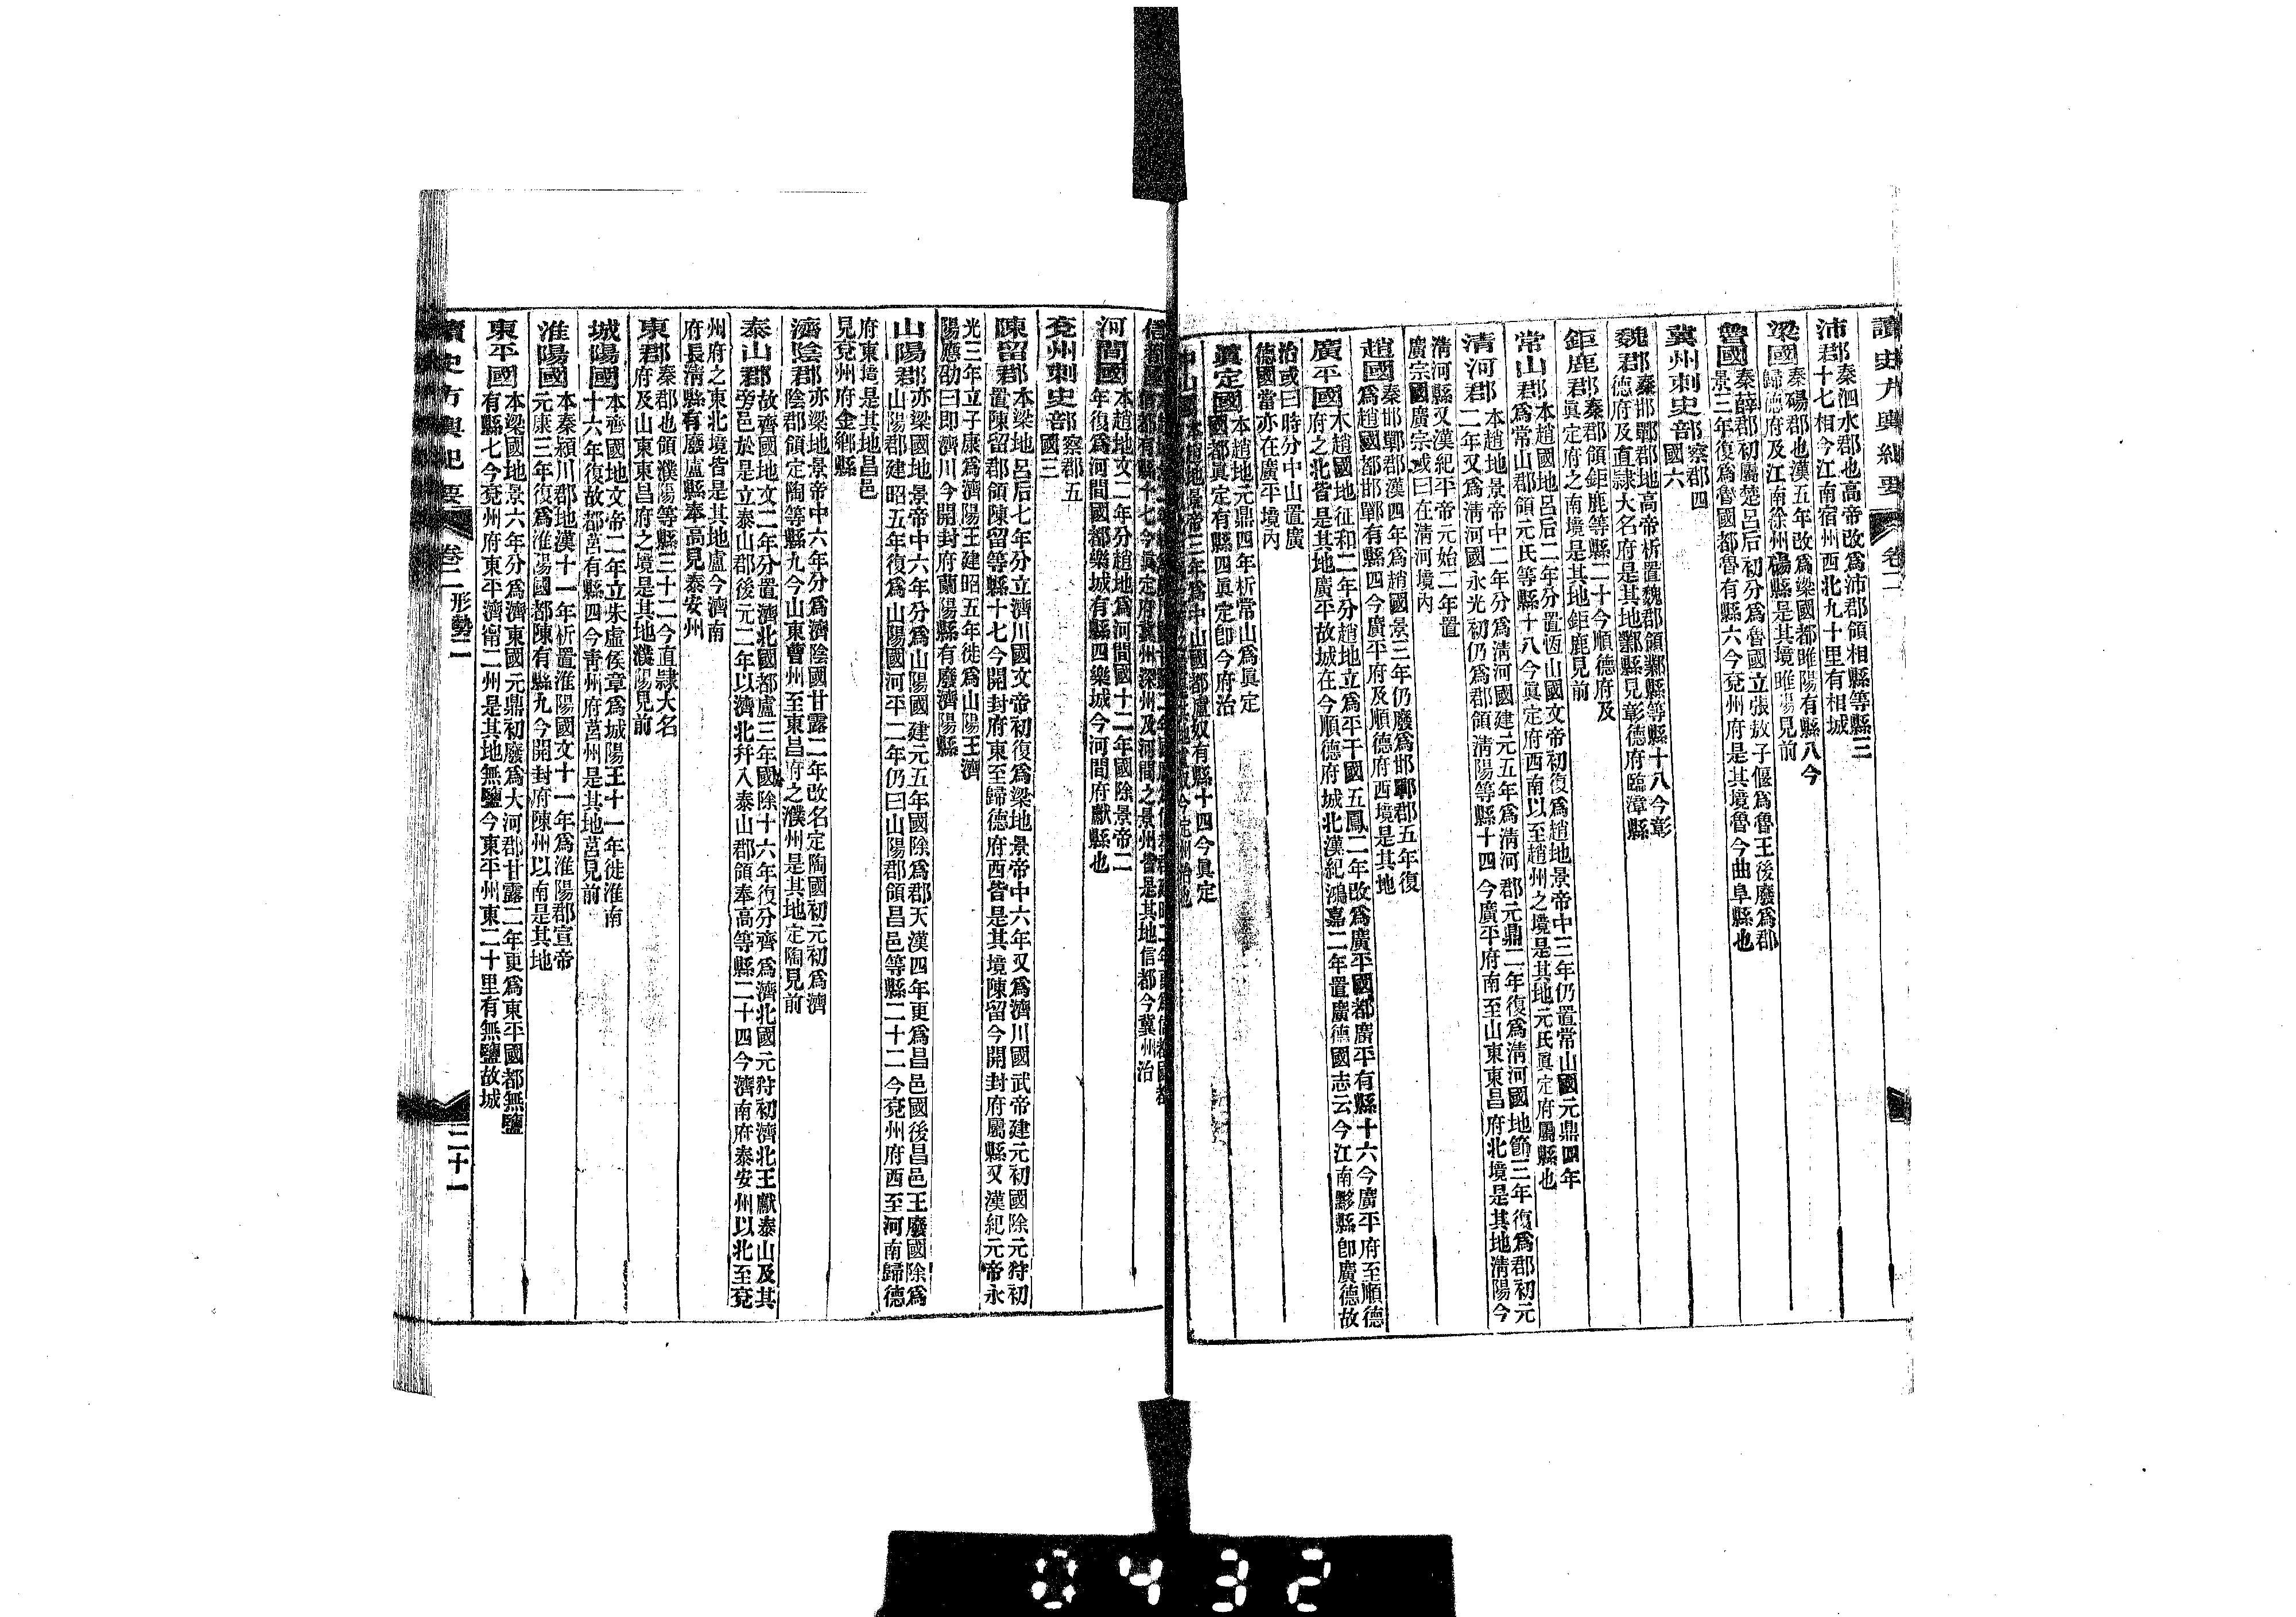 讀史方輿紀要 卷二
沛郡秦泗水郡也高帝改爲沛郡領相縣等縣三
十七相今江南宿州西北九十里有相城
梁國秦碭郡也漢五年改爲梁國都睢陽有縣八今
歸德府及江南徐州碭縣是其境睢陽見前
魯國秦薛郡初屬楚呂后初分爲魯國立張敖子偃爲魯王後廢爲郡
景三年復爲魯國都魯有縣六今兗州府是其境魯今曲阜縣也
冀州刺史部察郡四
國六
魏郡秦邯鄲郡地高帝析置魏郡領鄴縣等縣十八今彰
德府及直隸大名府是其地鄴縣見彰德府臨漳縣
鉅鹿郡秦郡領鉅鹿等縣二十今順德府及
眞定府之南境是其地鉅鹿見前
常山郡本趙國地呂后二年分置恆山國文帝初復爲趙地景帝中三年仍置常山國元鼎四年
爲常山郡領元氏等縣十八今眞定府西南以至趙州之境是其地元氏眞定府屬縣也
清河郡本趙地景帝中二年分爲淸河國建元五年爲淸河郡元鼎二年復爲淸河國地節三年復爲郡初元
二年又爲淸河國永光初仍爲郡領淸陽等縣十四今廣平府南至山東東昌府北境是其地淸陽今
淸河縣又漢紀平帝元始二年置
廣宗國廣宗或曰在淸河境內
趙國秦邯鄲郡漢四年爲趙國景三年仍廢爲邯鄲郡五年復
爲趙國都邯鄲有縣四今廣平府及順德府西境是其地
廣平國本趙國地征和二年分趙地立爲平干國五鳳二年改爲廣平國都廣平有縣十六今廣平府至順德
府之北皆是其地廣平故城在今順德府城北漢紀鴻嘉二年置廣德國志云今江南黟縣卽廣德故
治或曰時分中山置廣
德國當亦在廣平境內
眞定國本趙地元鼎四年析常山爲眞定
國都眞定有縣四眞定卽今府治
中山國本趙地景帝三年爲中山國都盧奴有縣十四今眞定
信都國
信都有縣十七今眞定府冀州深州及河間之景州皆是其地信都今冀州治
河間國本趙地文二年分趙地爲河間國十二年國除景帝二
年復爲河間國都樂城有縣四樂城今河間府獻縣也
兗州刺史部察郡五
國三
陳留郡本梁地呂后七年分立濟川國文帝初復爲梁地景帝中六年又爲濟川國武帝建元初國除元狩初
置陳留郡領陳留等縣十七今開封府東至歸德府西皆是其境陳留今開封府屬縣又漢紀元帝永
光三年立子康爲濟陽王建昭五年徙爲山陽王濟
陽應劭曰即濟川今開封府蘭陽縣有廢濟陽縣
山陽郡亦梁國地景帝中六年分爲山陽國建元五年國除爲郡天漢四年更爲昌邑國後昌邑王廢國除爲
山陽郡建昭五年復爲山陽國河平二年仍曰山陽郡領昌邑等縣二十二今兗州府西至河南歸德
府東境是其地昌邑
見兗州府金鄉縣
濟陰郡亦梁地景帝中六年分爲濟陰國甘露二年改名定陶國初元初爲濟
陰郡領定陶等縣九今山東曹州至東昌府之濮州是其地定陶見前
泰山郡故齊國地文二年分置濟北國都盧三年國除十六年復分齊爲濟北國元狩初濟北王獻泰山及其
旁邑於是立泰山郡後元二年以濟北幷入泰山郡領奉高等縣二十四今濟南府泰安州以北至兗
州府之東北境皆是其地盧今濟南
府長淸縣有廢盧縣奉高見泰安州
東郡秦郡也領濮陽等縣二十二今直隸大名
府及山東東昌府之境是其地濮陽見前
城陽國本齊國地文帝二年立朱虛侯章爲城陽王十一年徙淮南
十六年復故都莒有縣四今靑州府莒州是其地莒見前
淮陽國本秦潁川郡地漢十一年析置淮陽國文十一年爲淮陽郡宣帝
元康三年復爲淮陽國都陳有縣九今開封府陳州以南是其地
東平國本梁國地景六年分爲濟東國元鼎初廢爲大河郡甘露二年更爲東平國都無鹽
有縣七今兗州府東平濟甯二州是其地無鹽今東平州東二十里有無鹽故城
讀史方輿紀要 卷二 形勢二 二十一
0432